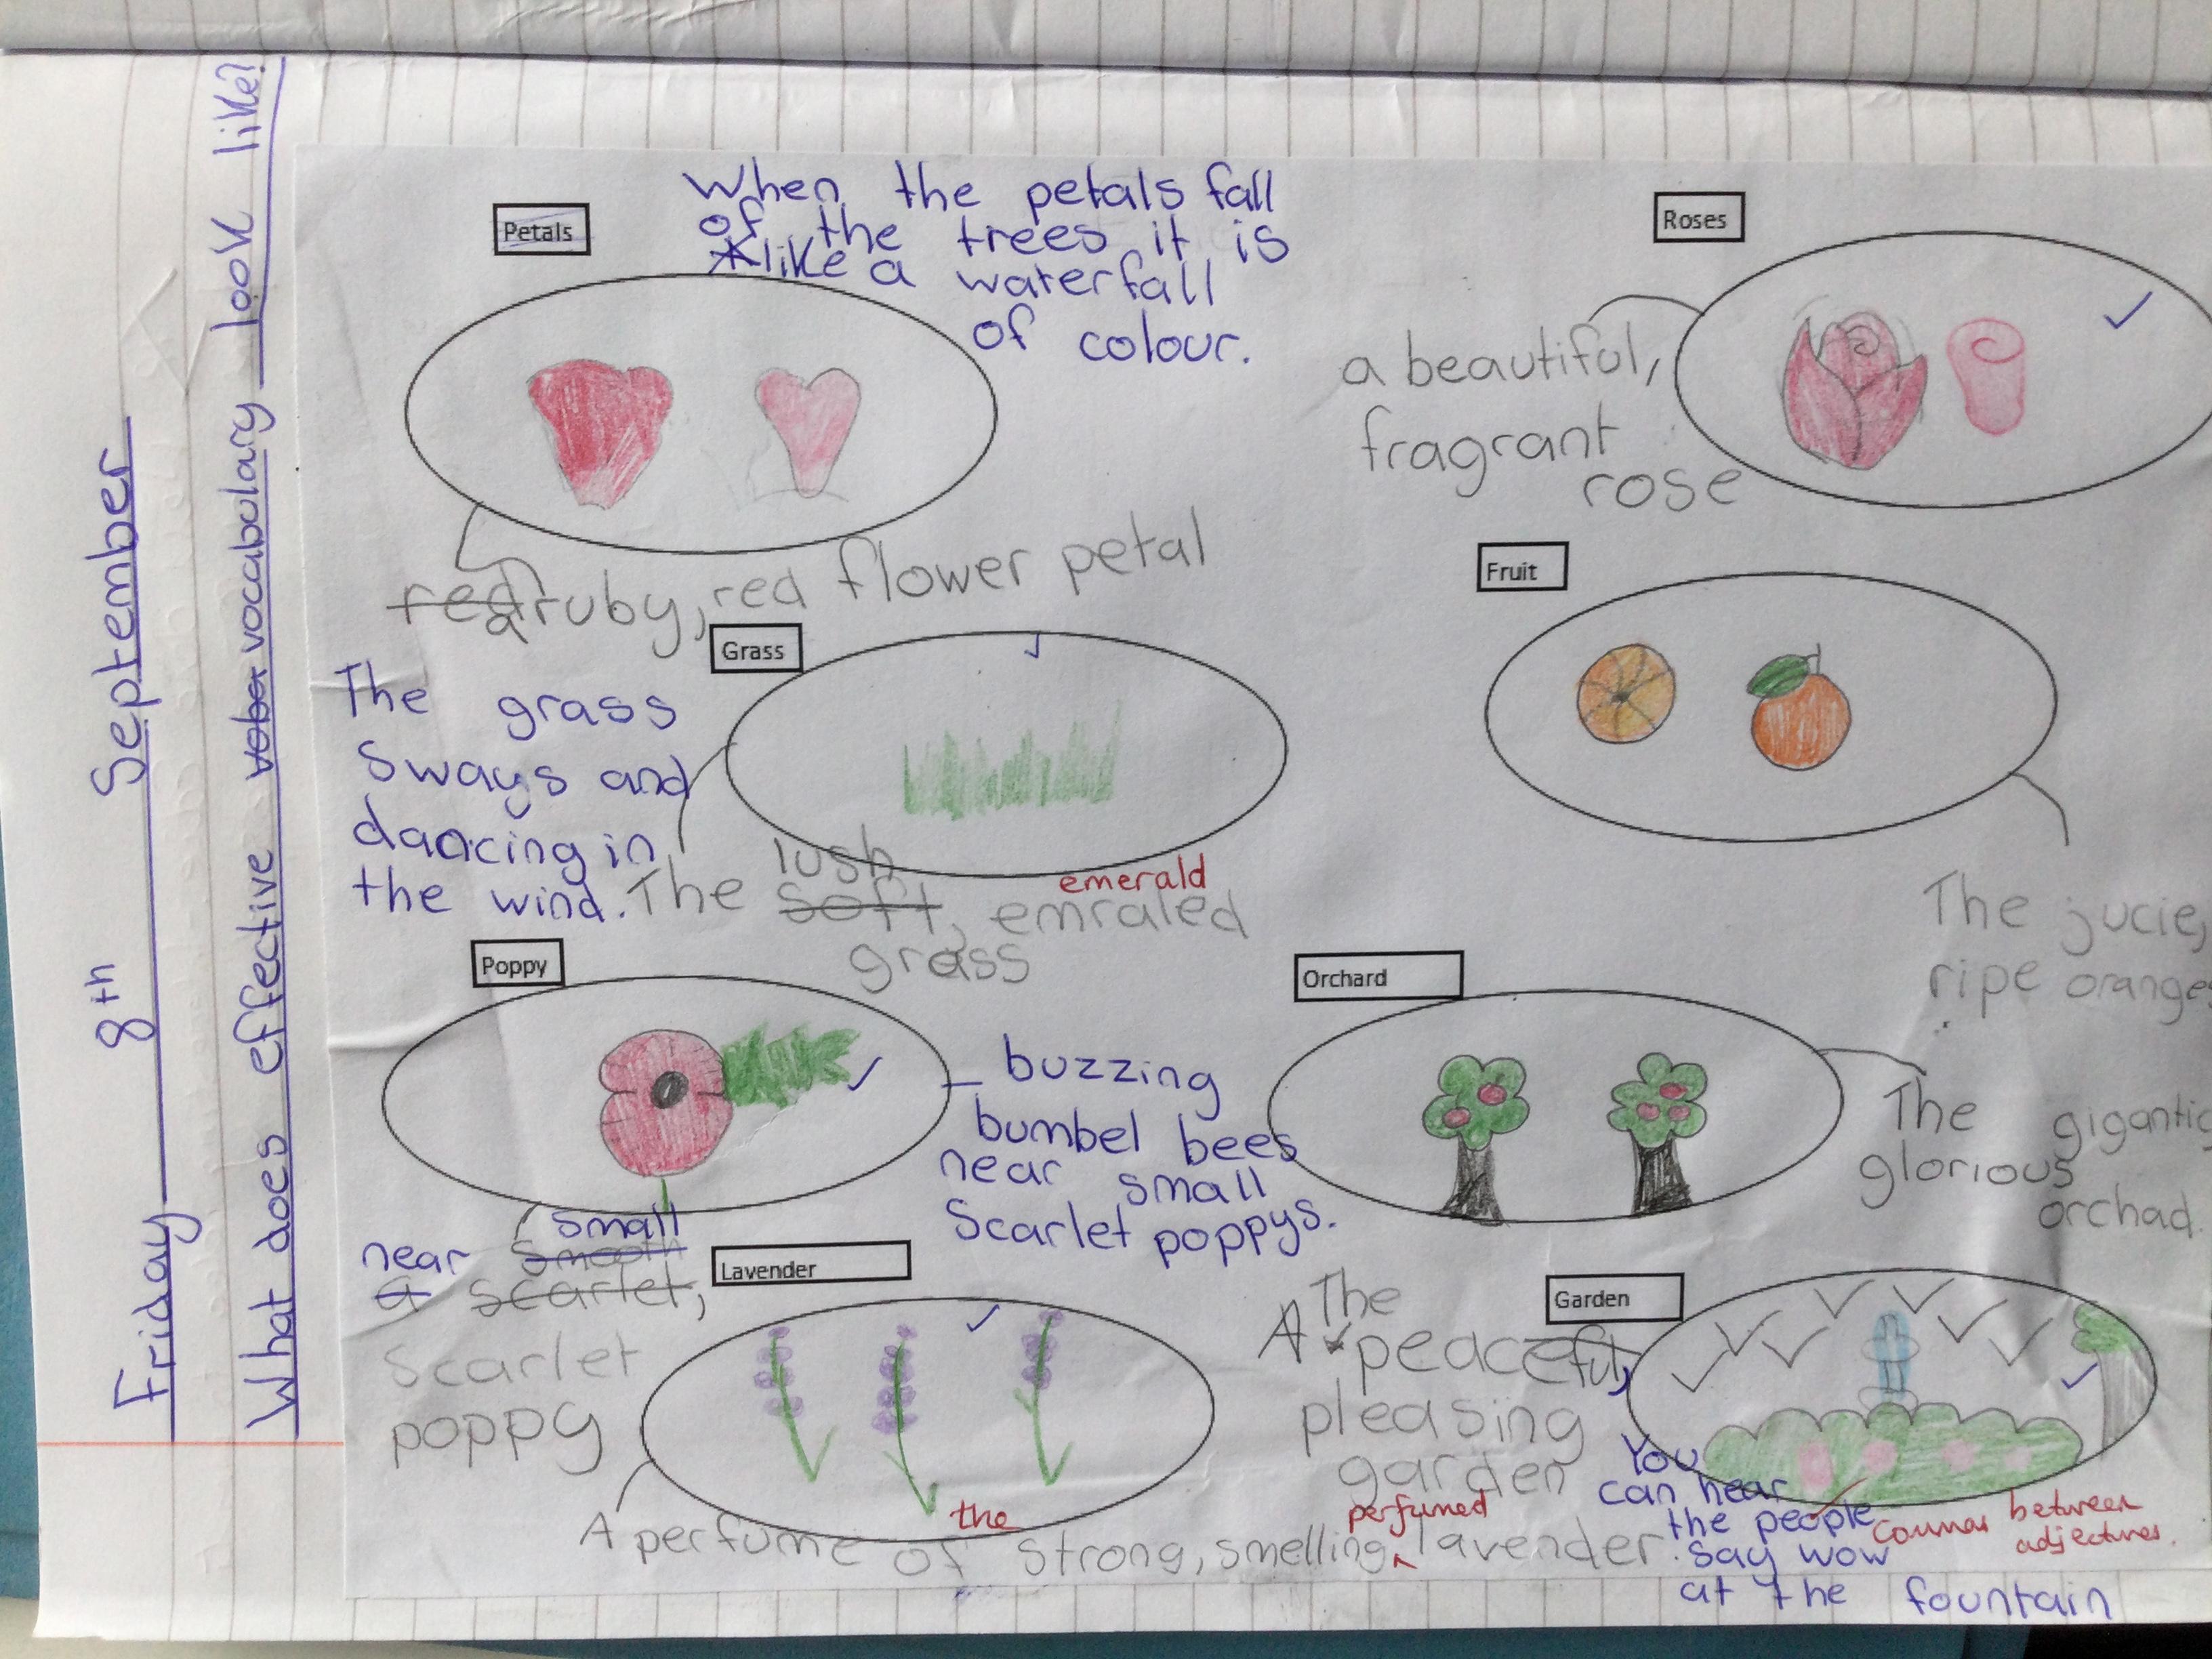 Friday 8th September
What does effective vober vocabulary look like?
Petals
When the petals fall
of the trees it is
like a waterfall
of colour.
red a ruby, red flower petal
Roses
a beautiful,
fragrant
rose
Grass
The grass
Sways and
dancing in
the wind.
lush
emerald
The soft, emraled
grass
Fruit
The jucie,
ripe orange
Poppy
buzzing
bumbel bees
near small
Scarlet poppys.
small
near smooth
a scarlet,
Scarlet
poppy
Orchard
The gigantic
glorious
orchad.
Lavender
the
perfumed
A perfume of strong, smelling lavender.
Garden
The
A peaceful,
pleasing
garden
You
can hear
the people
say wow
at the fountain
Commas between
adjectives.